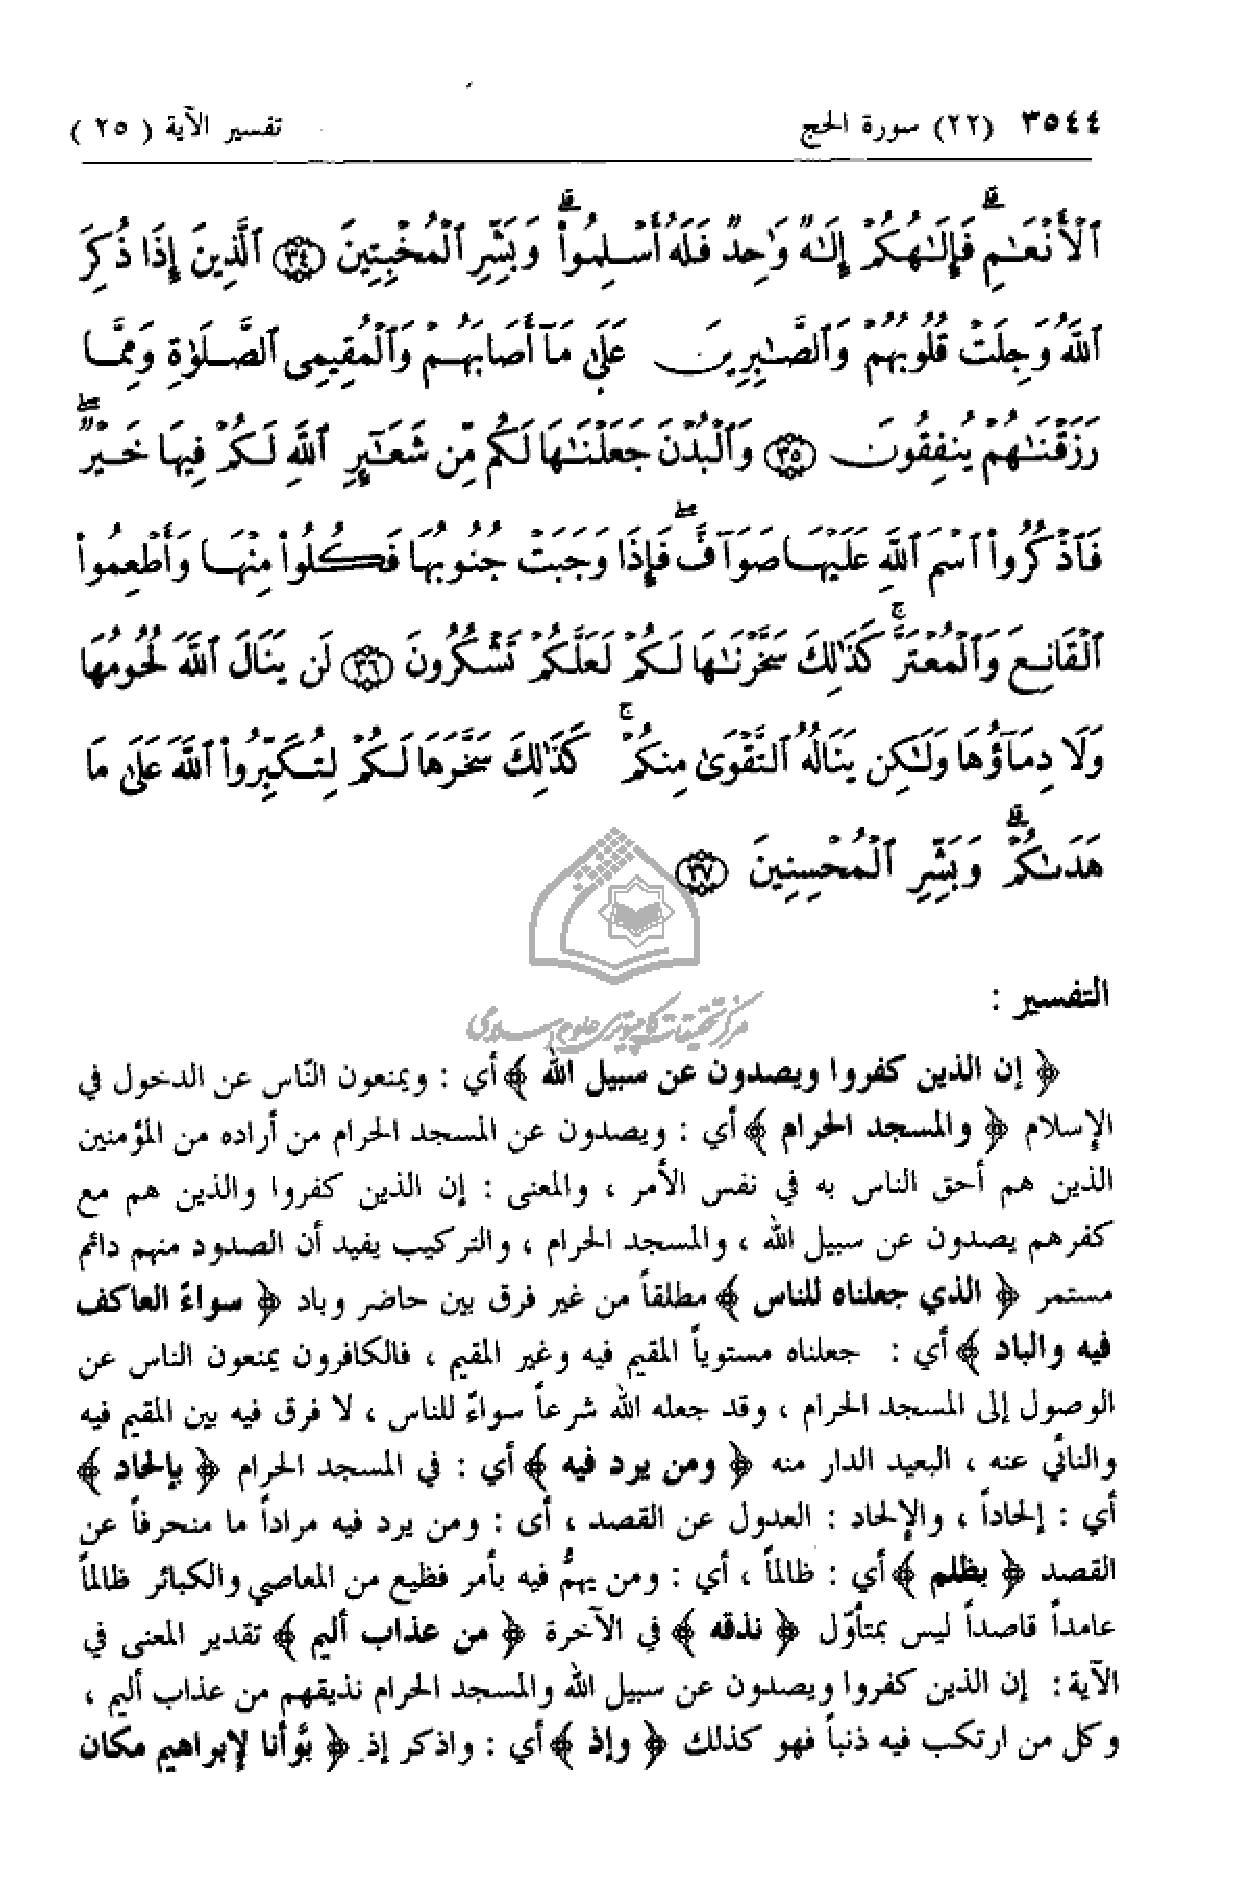 ٣٥٤٤ (٢٢) سورة الحج تفسير الآية ( ٢٥ )
ٱلْأَنْعَـٰمِۗ فَإِلَـٰهُكُمْ إِلَـٰهٌ وَٰحِدٌ فَلَهُۥٓ أَسْلِمُوا۟ۗ وَبَشِّرِ ٱلْمُخْبِتِينَ ٣٤ ٱلَّذِينَ إِذَا ذُكِرَ
ٱللَّهُ وَجِلَتْ قُلُوبُهُمْ وَٱلصَّـٰبِرِينَ عَلَىٰ مَآ أَصَابَهُمْ وَٱلْمُقِيمِى ٱلصَّلَوٰةِ وَمِمَّا
رَزَقْنَـٰهُمْ يُنفِقُونَ ٣٥ وَٱلْبُدْنَ جَعَلْنَـٰهَا لَكُم مِّن شَعَـٰٓئِرِ ٱللَّهِ لَكُمْ فِيهَا خَيْرٌۖ
فَٱذْكُرُوا۟ ٱسْمَ ٱللَّهِ عَلَيْهَا صَوَآفَّۖ فَإِذَا وَجَبَتْ جُنُوبُهَا فَكُلُوا۟ مِنْهَا وَأَطْعِمُوا۟
ٱلْقَانِعَ وَٱلْمُعْتَرَّۚ كَذَٰلِكَ سَخَّرْنَـٰهَا لَكُمْ لَعَلَّكُمْ تَشْكُرُونَ ٣٦ لَن يَنَالَ ٱللَّهَ لُحُومُهَا
وَلَا دِمَآؤُهَا وَلَـٰكِن يَنَالُهُ ٱلتَّقْوَىٰ مِنكُمْۚ كَذَٰلِكَ سَخَّرَهَا لَكُمْ لِتُكَبِّرُوا۟ ٱللَّهَ عَلَىٰ مَا
هَدَىٰكُمْۗ وَبَشِّرِ ٱلْمُحْسِنِينَ ٣٧
مركز تحقيقات كامپيوترى علوم اسلامى
التفسير :
﴿ إن الذين كفروا ويصدون عن سبيل الله ﴾ أي : ويمنعون النّاس عن الدخول في
الإسلام ﴿ والمسجد الحرام ﴾ أي : ويصدون عن المسجد الحرام من أراده من المؤمنين
الذين هم أحق الناس به في نفس الأمر ، والمعنى : إن الذين كفروا والذين هم مع
كفرهم يصدون عن سبيل الله ، والمسجد الحرام ، والتركيب يفيد أن الصدود منهم دائم
مستمر ﴿ الذي جعلناه للناس ﴾ مطلقاً من غير فرق بين حاضر وباد ﴿ سواءً العاكف
فيه والباد ﴾ أي : جعلناه مستوياً المقيم فيه وغير المقيم ، فالكافرون يمنعون الناس عن
الوصول إلى المسجد الحرام ، وقد جعله الله شرعاً سواءً للناس ، لا فرق فيه بين المقيم فيه
والنائي عنه ، البعيد الدار منه ﴿ ومن يرد فيه ﴾ أي : في المسجد الحرام ﴿ بإلحاد ﴾
أي : إلحاداً ، والإلحاد : العدول عن القصد ، أى : ومن يرد فيه مراداً ما منحرفاً عن
القصد ﴿ بظلم ﴾ أي : ظالماً ، أي : ومن يهمُّ فيه بأمر فظيع من المعاصي والكبائر ظالماً
عامداً قاصداً ليس بمتأوّل ﴿ نذقه ﴾ في الآخرة ﴿ من عذاب أليم ﴾ تقدير المعنى في
الآية : إن الذين كفروا ويصدون عن سبيل الله والمسجد الحرام نذيقهم من عذاب أليم ،
وكل من ارتكب فيه ذنباً فهو كذلك ﴿ وإذ ﴾ أي : واذكر إذ ﴿ بوَّأنا لإبراهيم مكان